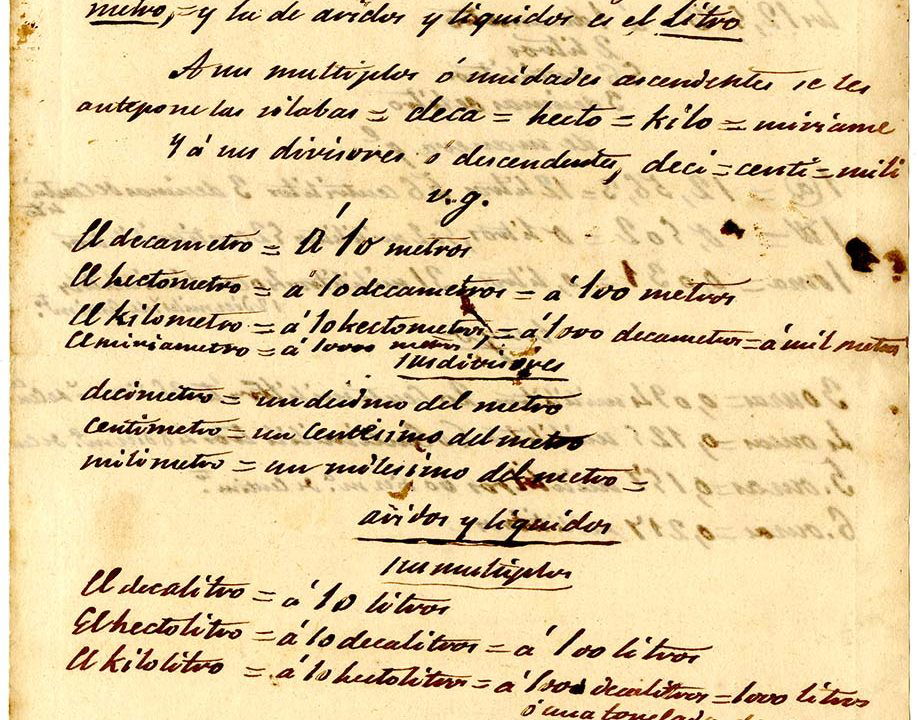 metro, = y la de aridos y liquidos es el Litro
A sus multiplos ó unidades ascendentes se les
antepone las silabas = deca = hecto = kilo = miriame
Y á sus divisores ó descendentes, deci = centi = mili
v.g.
El decametro = á 10 metros
El hectometro = á 10 decametros = á 100 metros
El kilometro = á 10 hectometros, = á 1000 decametros = á mil metros
El miriametro = á 10000 metros
sus divisores
decimetro = un decimo del metro
centimetro = un centesimo del metro
milimetro = un milesimo del metro =
aridos y liquidos
sus multiplos
El decalitro = á 10 litros
El hectolitro = á 10 decalitros = á 100 litros
El kilolitro = á 10 hectolitros = á 1000 decalitros = 1000 litros
ó una tonelada